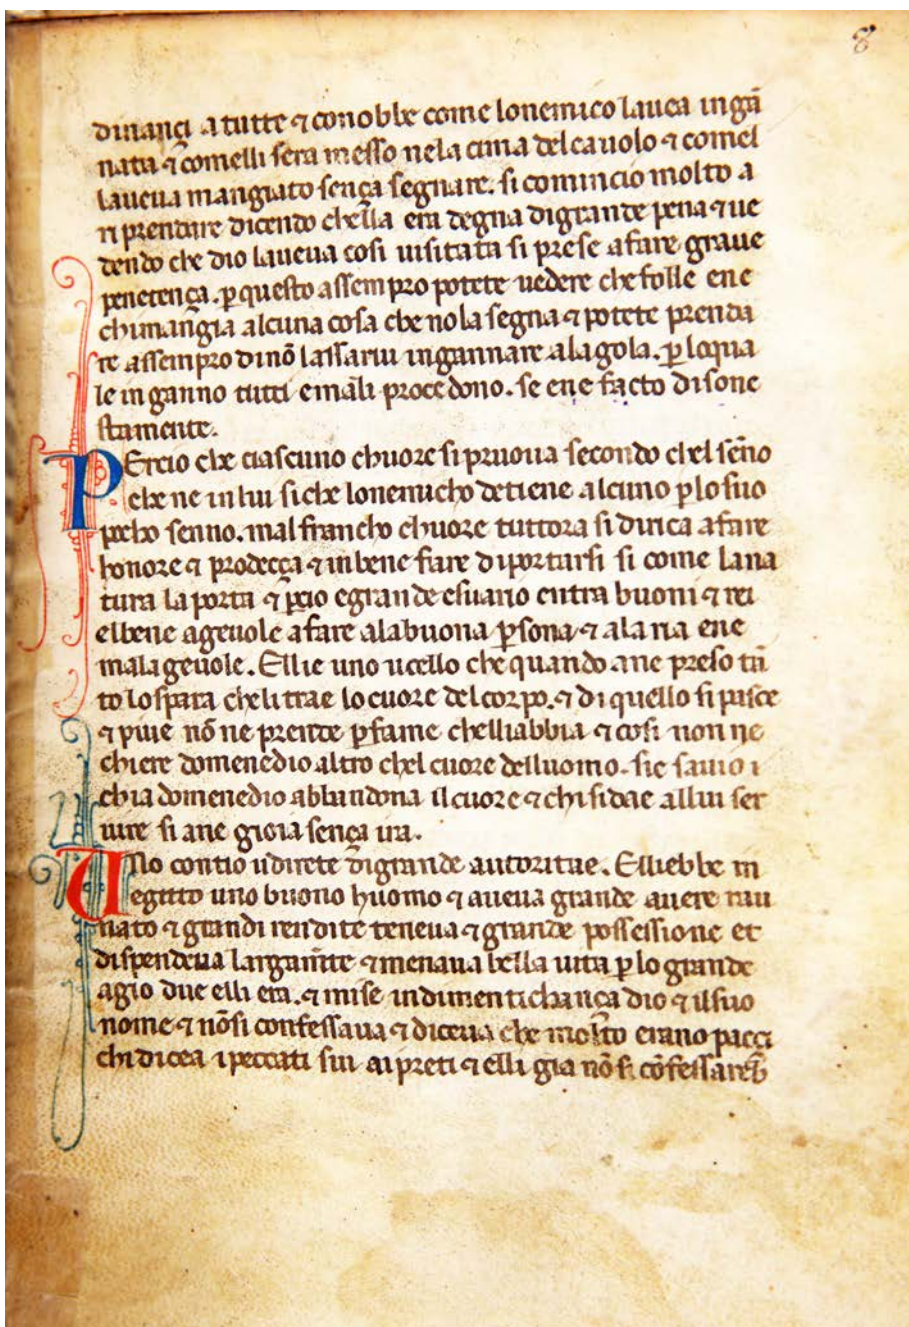 8
dinançi a tutte ⁊ conobbe come lonemico lauea ingā
nata ⁊ comelli sera messo nela cima del cauolo ⁊ comel
laueua mangiato sença segnare. si comincio molto a
ri prendare dicendo chella era degna digrande pena ⁊ ue
dendo che dio laueua cosi uisitata si prese afare graue
penetença. ꝑ questo assempro potete uedere che folle ene
chi mangia alcuna cosa che nola segna ⁊ potete prenda
re assempro di nō lassarui ingannare ala gola. ꝑ loqua
le inganno tutti emali procedono. se ene facto disone
stamente.
PErcio che ciascuno chuore si pruoua secondo chel sēno
che ne in lui si che lonemicho detiene alcuno ꝑ lo suo
pocho senno. mal francho chuore tuttora si diriça afare
honore ⁊ prodeçça ⁊ in bene fare diportarsi si come la na
tura la porta ⁊ ꝑcio egrande esuario entra buoni ⁊ rei
elbene ageuole afare ala buona ꝑsona ⁊ ala ria ene
mala geuole. Ellie uno ucello che quando ane preso tū
to lo spara chelitrae lo cuore del corpo. ⁊ di quello si pasce
⁊ viue nō ne prende ꝑ fame chelliabbia ⁊ cosi non ne
chiere domenedio altro chel cuore delluomo. sie sauio i
chi a domenedio abbandona il cuore ⁊ chi si dae allui ser
uire si ane gioia sença ira.
UNo contio udirete digrande autoritae. Elliebbe in
egitto uno buono huomo ⁊ aueua grande auere rau
nato ⁊ grandi rendite teneua ⁊ grande possessione et
dispendeua largam̄te ⁊ menaua bella uita ꝑ lo grande
agio due elli era. ⁊ mise indimentichança dio ⁊ il suo
nome ⁊ nō si confessaua ⁊ diceua che molto erano pacçi
chi dicea i peccati sui ai preti ⁊ elli gia nō si cōfessareb̄